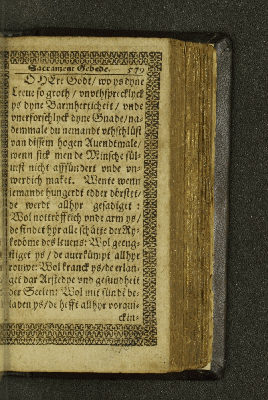 Sacrament Gebede. 579
O HEre Godt / wo ys dyne
Leeue so groth / vnuthsprecklyck
ys dyne Barmherticheit / vnde
vnerforschlyck dyne Gnade / na-
demmale du nemandt vthschlüst
van dissem hogen Auendtmale /
wenn sick men de Minsche sül-
uest nicht affsündert vnde vn-
werdich maket. Wente wenn
jemandt hungerdt edder dörstet /
de werdt allhyr gesadiget :
Wol nottrofftich vnde arm ys /
de findet hyr alle schätze der Ry-
kedöme des leuens: Wol geeng-
stiget ys / de auerkümpt allhyr
rouwe: Wol kranck ys / de erlan-
get dar Arstedye vnd gesundheit
der Seelen: Wol mit sünde be-
laden ys / de hefft allhyr vorqui-
cken-